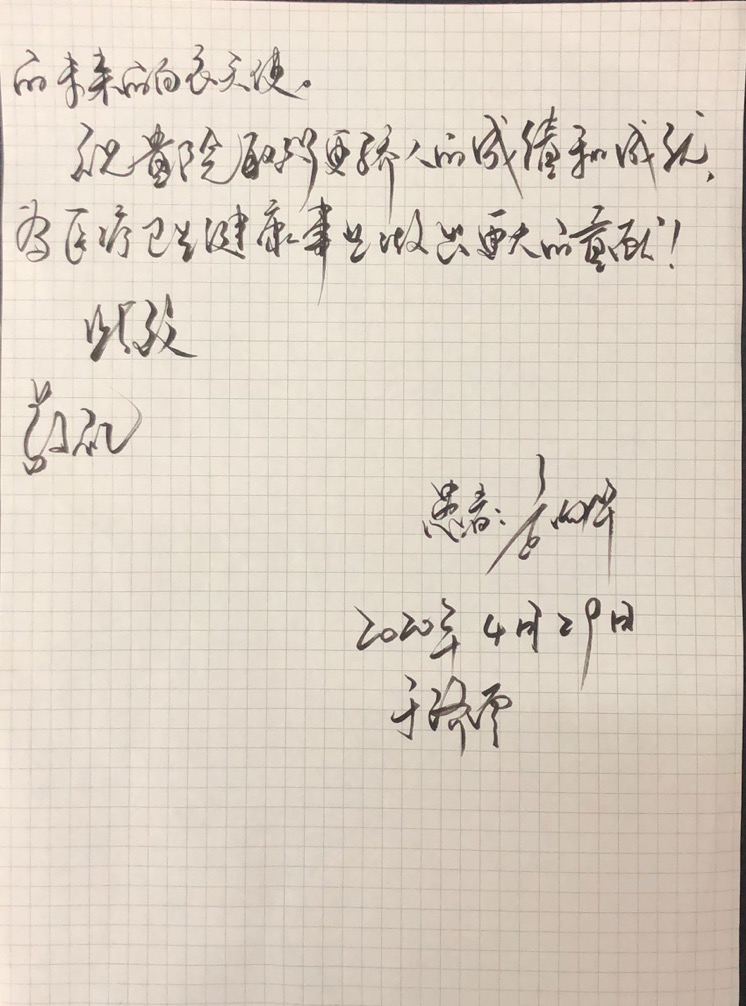 的未来的白衣天使。
祝贵院取得更骄人的成绩和成就，
为医疗卫生健康事业做出更大的贡献！
此致
敬礼
患者：
2020年4月29日
于济南